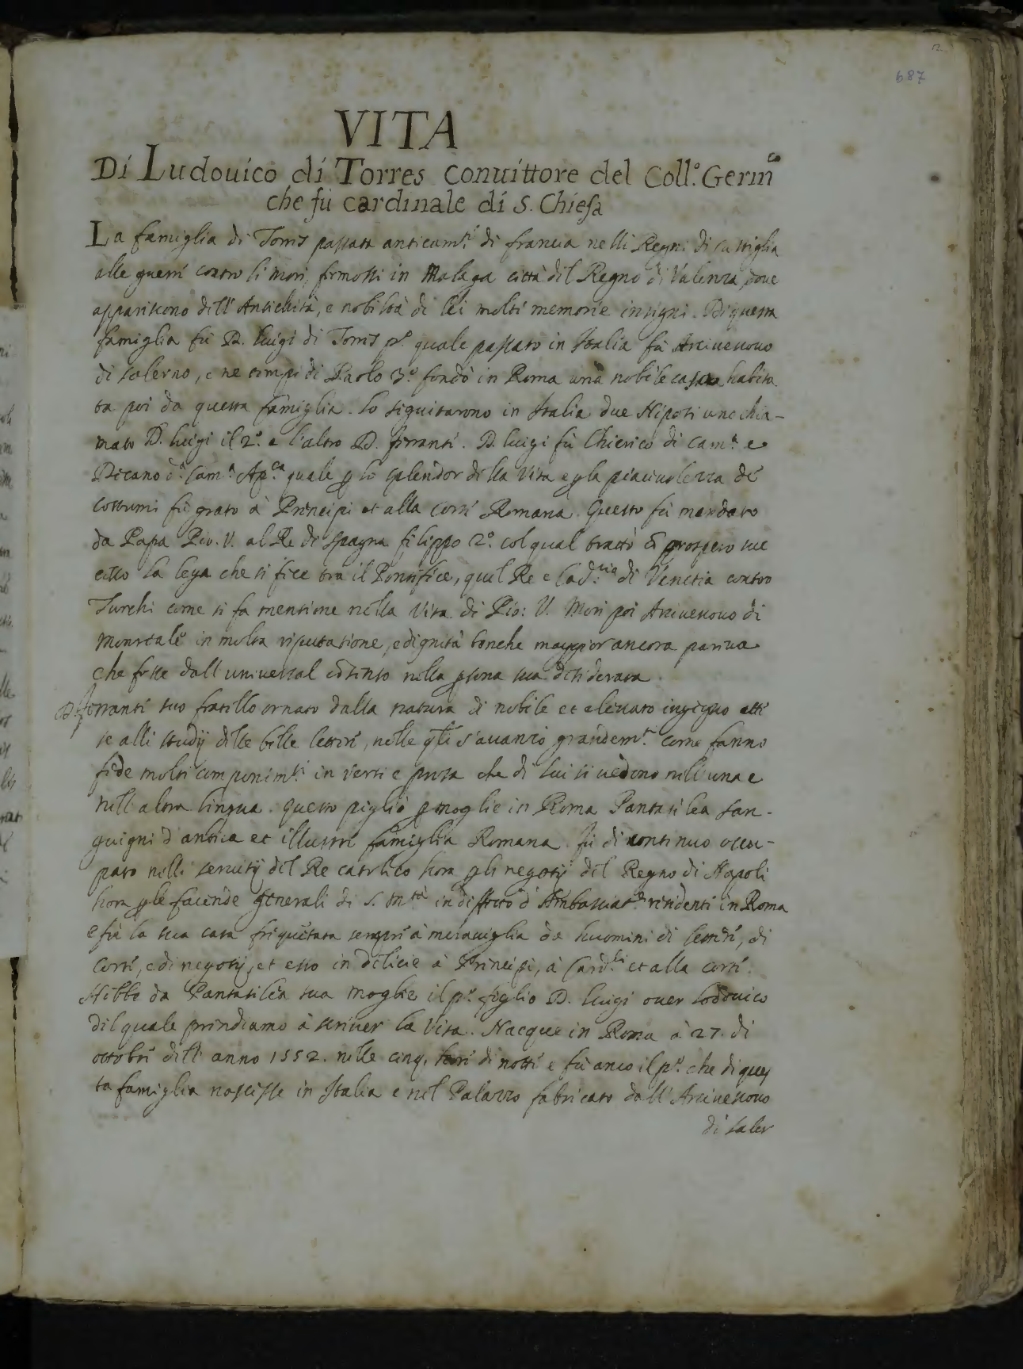 687
VITA
Di Ludouico di Torres Conuittore del Coll.º Germ.co
che fù cardinale di S. Chiesa
La famiglia di Torres passata anticam.te di francia nelli Regni di Castiglia
alle guerre contro li mori, fermossi in Malega città del Regno di Valenza, doue
appariscono dell'Antichità, e nobiltà di lei molte memorie insigni. Di questa
famiglia fù D. luigi di Torres pº quale passato in Italia fù Arciuescouo
di Salerno, e ne tempi di Paolo 3º fondò in Roma una nobile casa habita
ta poi da questa famiglia. Lo seguitarono in Italia due Nipoti uno chia-
mato D. luigi il 2º e l'altro D. ferranti. D. luigi fù Chierico di Cam.a e
Decano d.ª Cam.ª Ap.ca quale p lo splendor della Vita e p la piaceuolezza de
costumi fù grato à Principi et alla Corte Romana. Questo fù mandato
da Papa Pio. V. al Re de Spagna filippo 2º col qual trattò cō prospero suc
cesso la lega che si fece tra il Pontefice, quel Re e la d. di Venetia contro
Turchi come si fa mentione nella Vita di Pio: V. Morì poi Arciuescouo di
Monreale in molta riputatione, e dignità benche maggior ancora pareua
che fosse dall'universal cōsenso nella psona sua desiderata.
D. ferranti suo fratello ornato dalla natura di nobile et eleuato ingegno atte
se alli studij delle belle lettere, nelle qli s'auanzò grandem.te come fanno
fede molti componimti in versi e prosa che di lui si uedono nell'una e
nell'altra lingua. questo pigliò p moglie in Roma Pantasilea San-
guigni d'antica et illustre famiglia Romana. fù di continuo occu-
pato nelli seruitij del Re catolico hora p li negotij del Regno di Napoli
hora p le facende generali di S. M.tà in diffetto d'Ambasciat.ri residenti in Roma
e fù la sua casa frequētata sempre à merauiglia da huomini di lettere, di
corte, e di negotij, et esso in delicie à Principi, à Card.li et alla corte.
Hebbe da Pantasilea sua moglie il pº figlio D. luigi ouer Lodouico
del quale prendiamo à scriuer la Vita. Nacque in Roma à 27. di
ottobre dell'anno 1552. nelle cinq. hore di notte e fù anco il pº che di ques
ta famiglia nascesse in Italia e nel Palazzo fabricato dall'Arciuescouo
di Saler